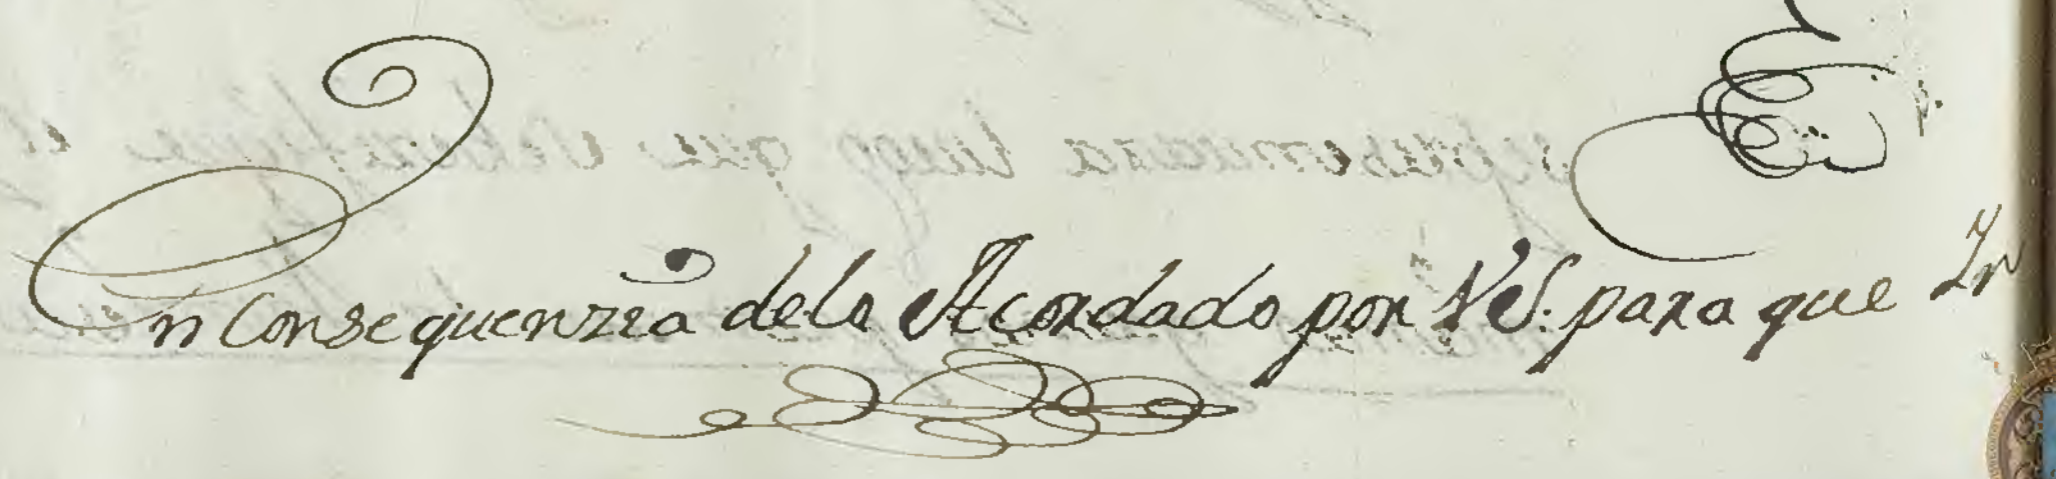 En Consequenzia delo Acordado por VS. para que In